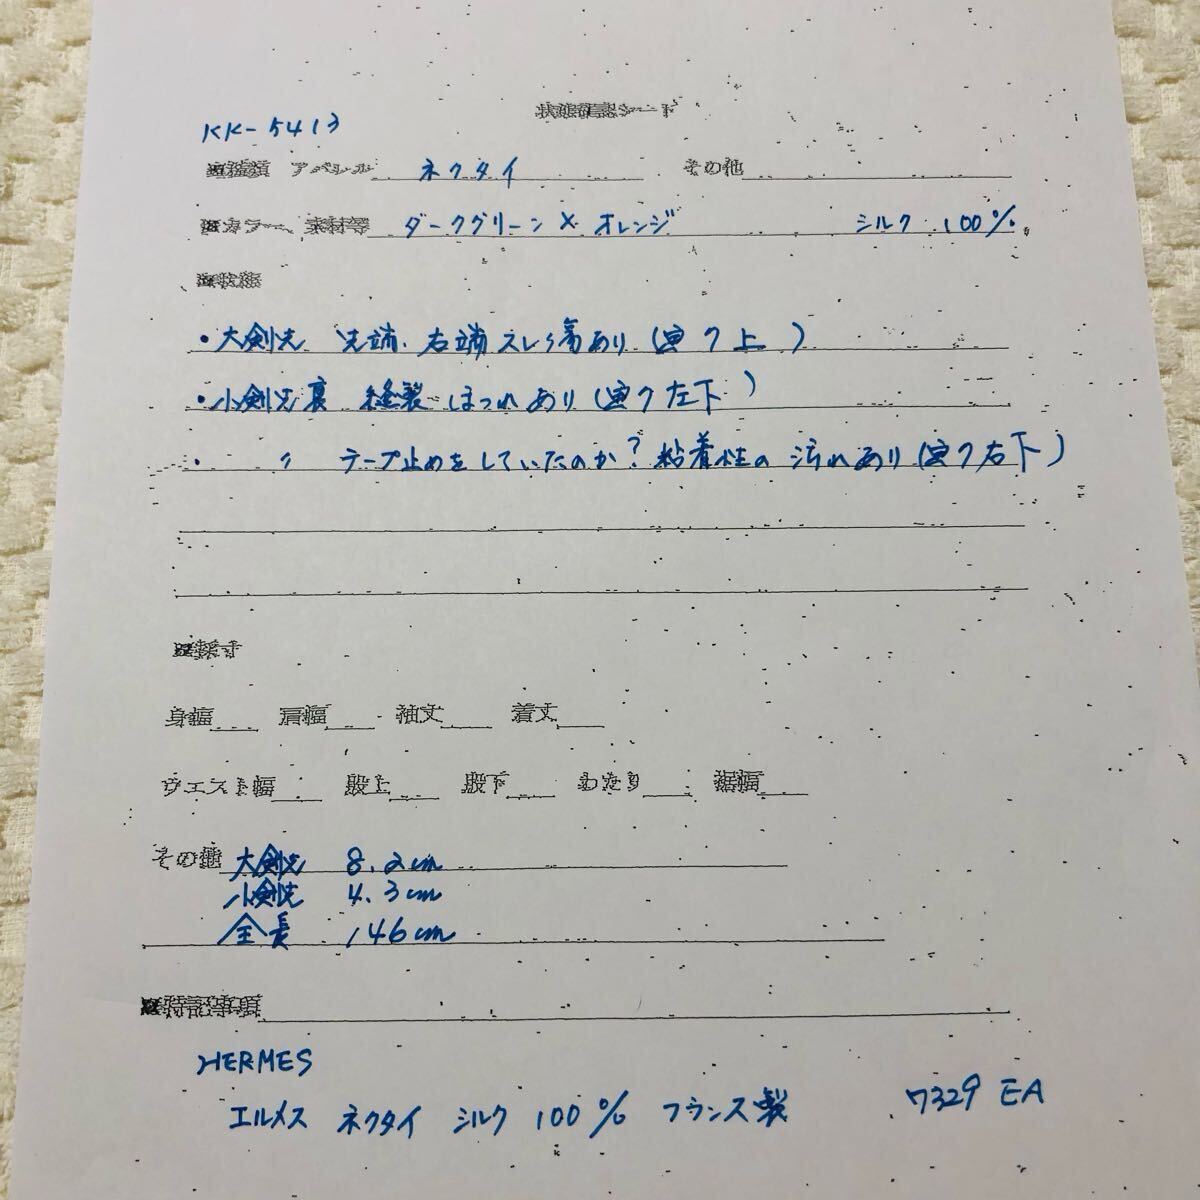 状態確認シート
KK-5413
■種類 アパレル ネクタイ その他
■カラー、素材等 ダークグリーン × オレンジ シルク 100%
■状態
・大剣先 先端、右端スレ傷あり(画ク上)
・小剣先裏 縫製ほつれあり(画ク左下)
・ 〃 テープ止めをしていたのか?粘着性の汚れあり(画ク右下)
■採寸
身幅 肩幅 袖丈 着丈
ウエスト幅 股上 股下 わたり 裾幅
その他 大剣先 8.2cm
小剣先 4.3cm
全長 146cm
■特記事項
HERMES
エルメス ネクタイ シルク 100% フランス製 7329 EA